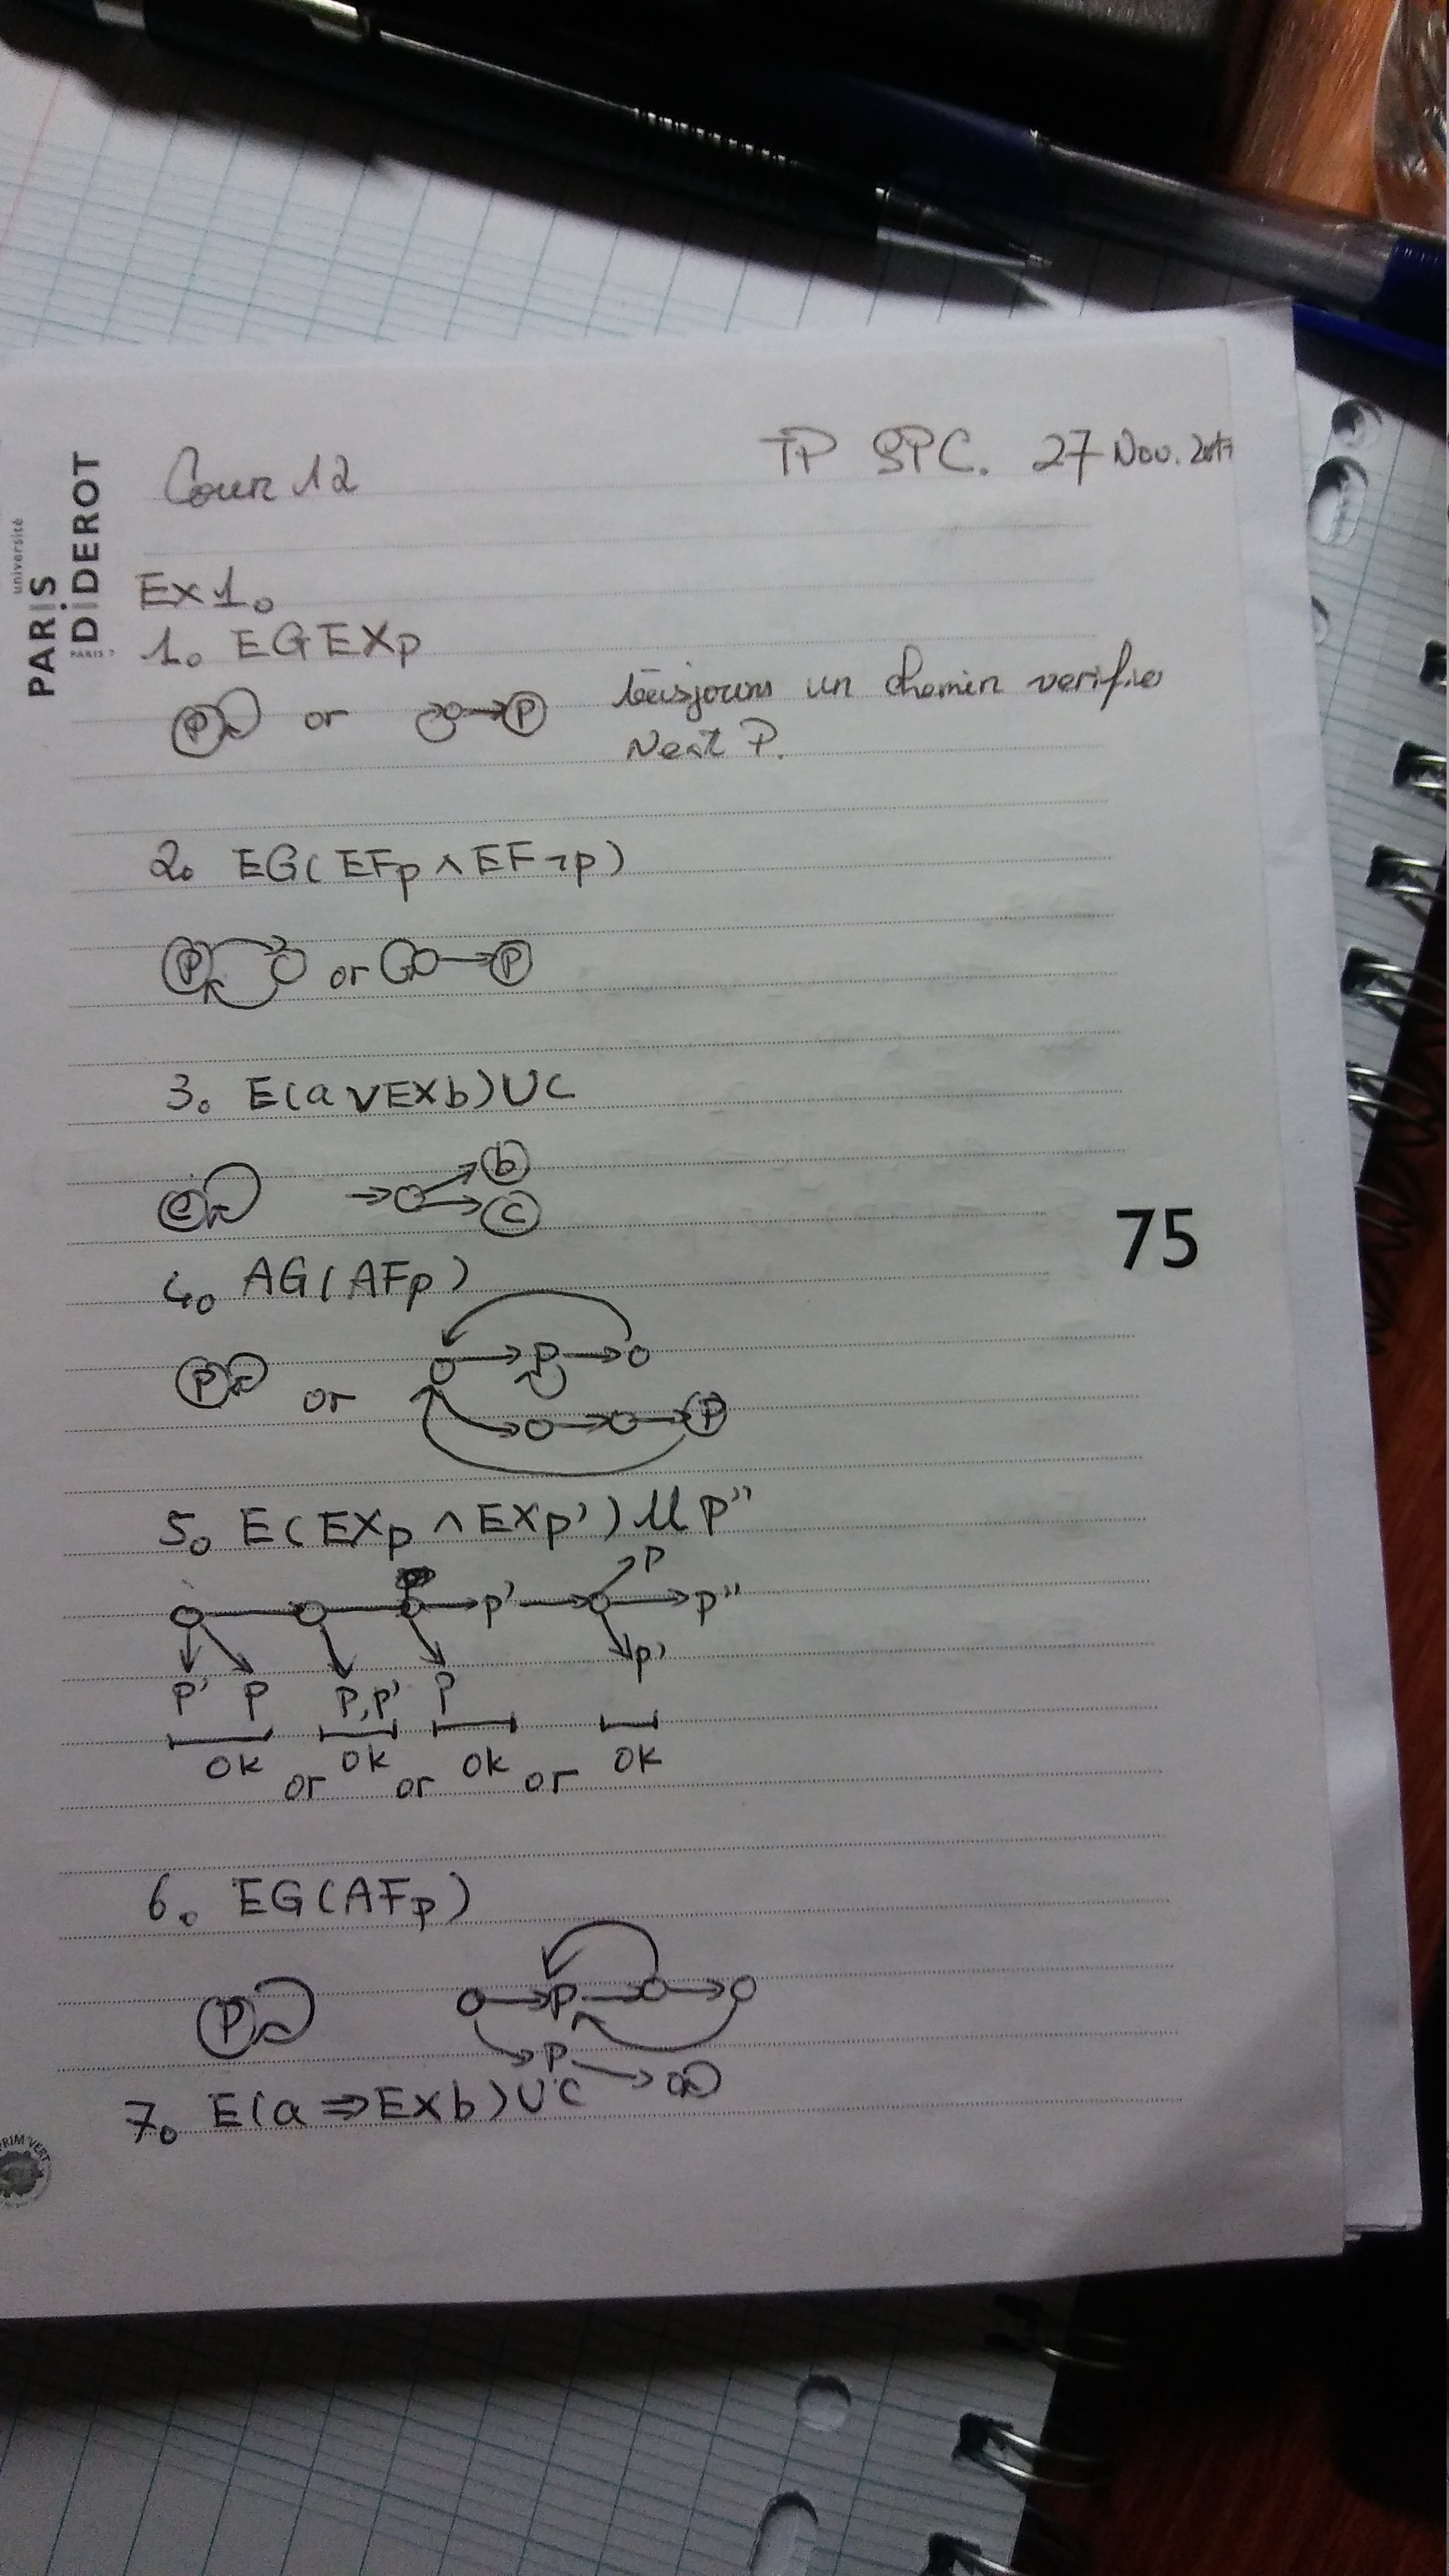 université
PARiS
DiDEROT
PARIS 7
Cour 12
TP SPC. 27 Nov. 2017
Ex 1.
1. EGEXp
P or P
un chemin verifie
Next P.
2. EG(EFp ∧ EF¬p)
P or P
3. E(a ∨ EXb)UC
c b
c
75
4. AG(AFp)
P or P
P
5. E(EXp ∧ EXp')U P"
p' P p"
p'
P' P P,P' P
ok or ok or ok or ok
6. EG(AFp)
P P
P
7. E(a ⇒ EXb)UC
PRIM'VERT